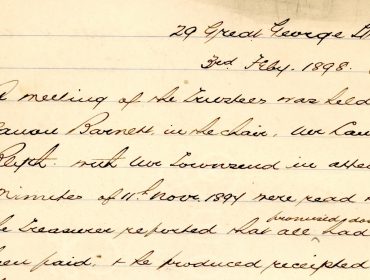 29 Great George St
3rd Feby. 1898.
A meeting of the Trustees was held
Canon Barnett, in the chair, Mr
Blyth. with Mr Townsend in atten
minutes of 11th Novr. 1897 were read
promised do
he Treasurer reported that all had
been paid, & he produced receipted